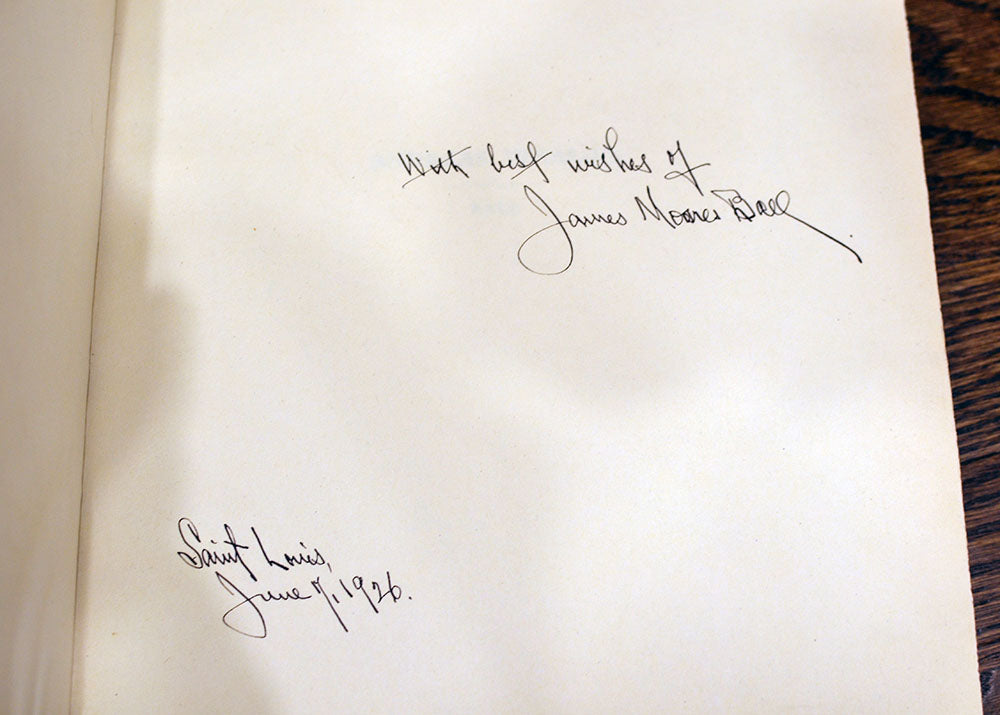 With best wishes of
James Moores Ball.
Saint Louis,
June 7, 1926.